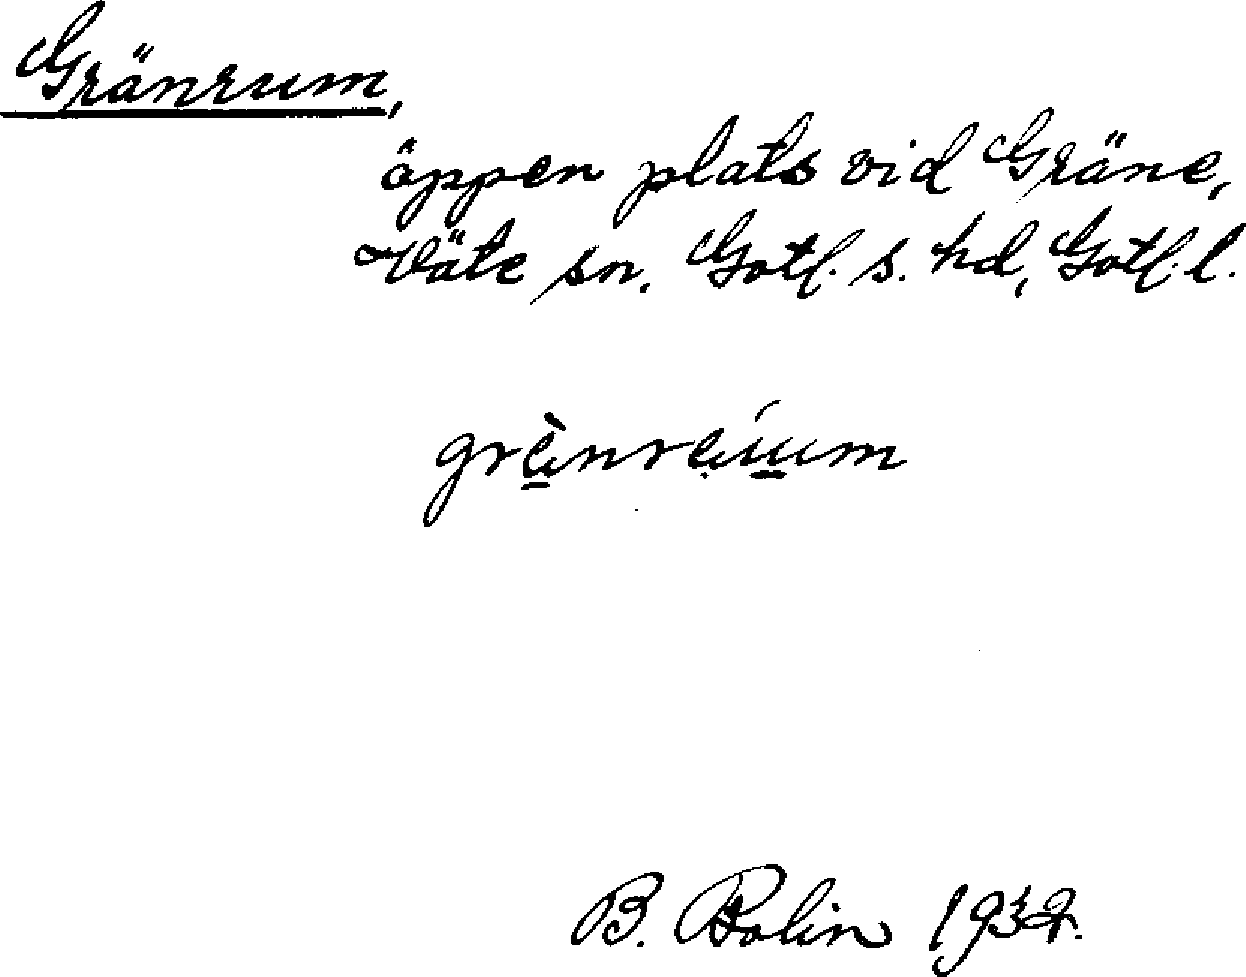 Gränrum,
öppen plats vid Gräne,
Väte sn, Gotl. s. hd, Gotl. l.
B. Bolin 1932.